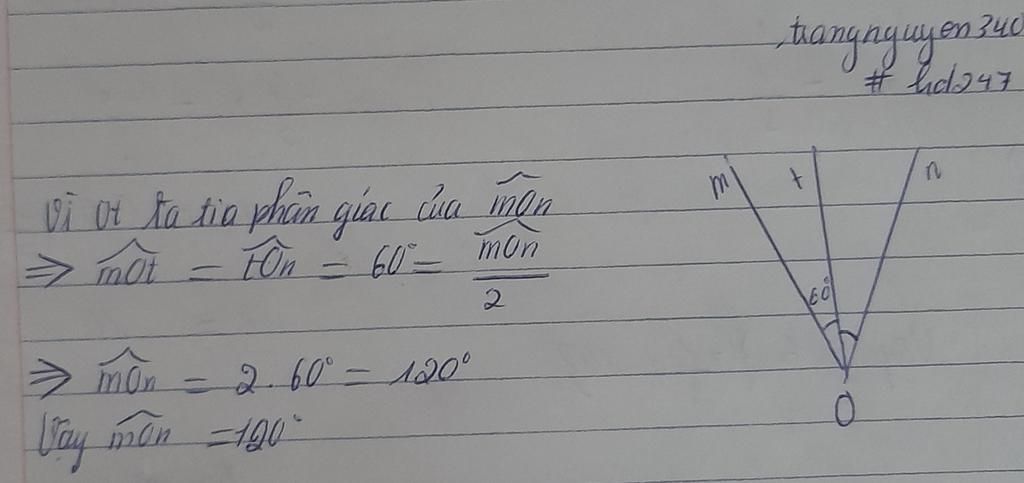 trangnguyen340
# hd247
Vì Ot là tia phân giác của mOn
⇒ mOt = tOn = 60° = mOn / 2
⇒ mOn = 2.60° = 120°
Vậy mOn = 120°
m t n
60°
O